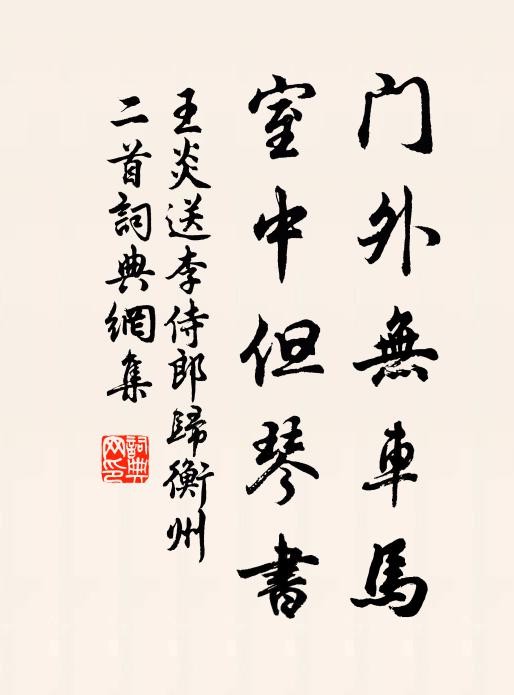 门外無車馬
室中但琴書
王炎送李侍郎歸衡州
二首詞典網集
詞典
网印